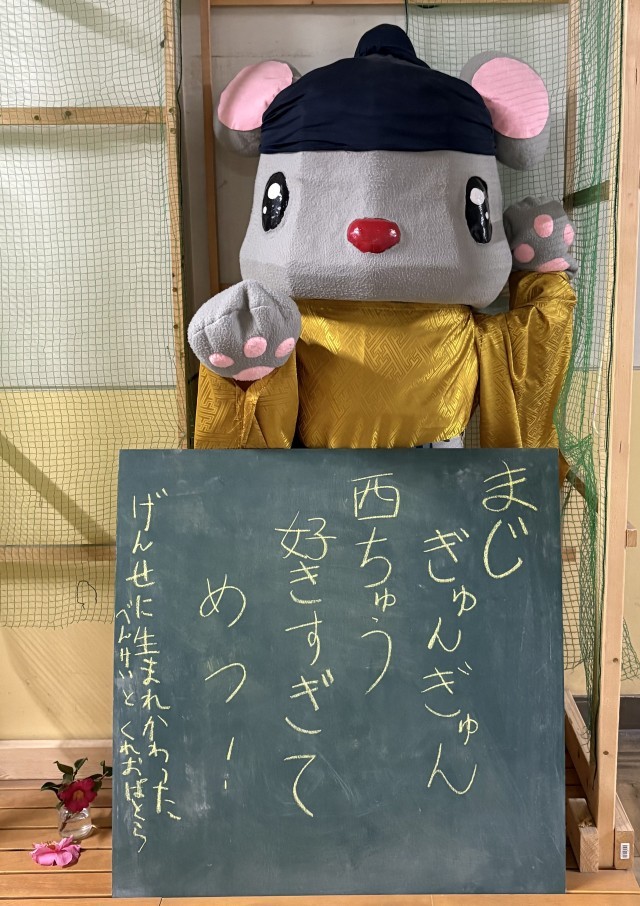 まじ
ぎゅんぎゅん
西ちゅう
好きすぎて
めつー
げんせに生まれかわった
べんけいとくれおぱとら